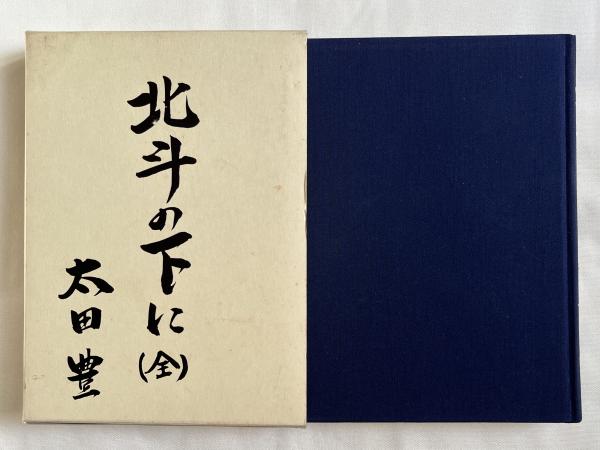 北斗の下に(全)
太田豊